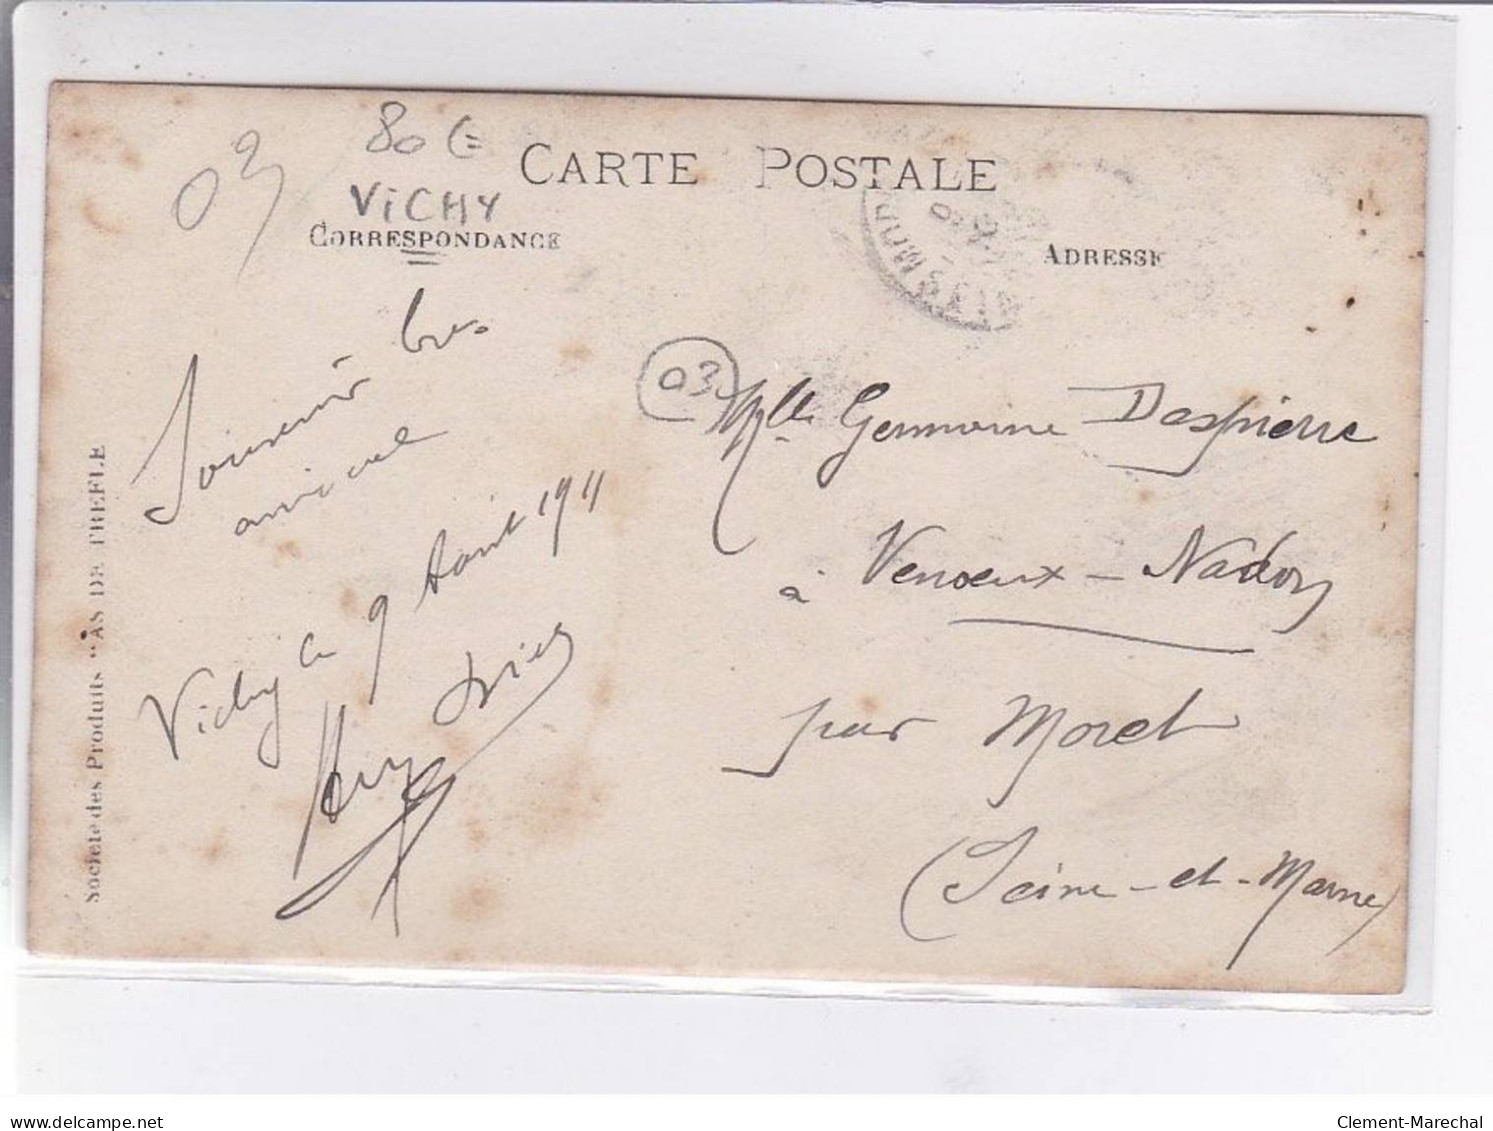 03
80 €
VICHY
CARTE POSTALE
CORRESPONDANCE
ADRESSE
Souvenir bien
amical
Vichy le 9 Août 1911
03
Mlle Germaine Despierre
à Veneux-Nadon
par Moret
(Seine-et-Marne)
Société des Produits "AS DE TREFLE
www.delcampe.net
Clement-Marechal